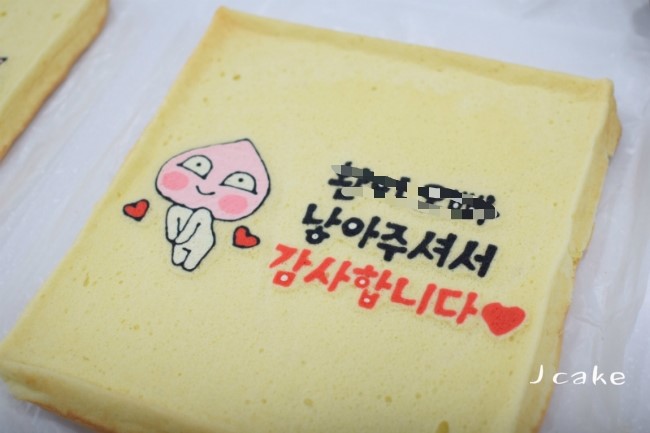 낳아주셔서
감사합니다
J cake